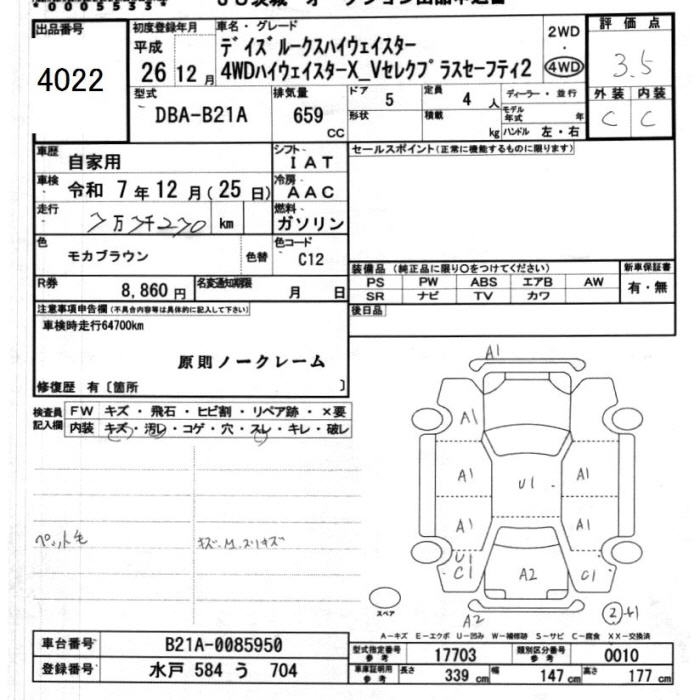 出品番号
4022
初度登録年月
平成
26 12 月
車名・グレード
デイズルークスハイウェイスター
4WDハイウェイスターX_Vセレクプラスセーフティ2
2WD
・
4WD
評価点
3.5
外装 内装
C C
型式
DBA-B21A
排気量
659
CC
ドア
5
定員
4 人
形状
積載
kg
ディーラー・並行
モデル年式 年
ハンドル 左・右
車歴
自家用
シフト
IAT
車検
令和 7 年 12 月(25 日)
冷房
AAC
走行
km
燃料
ガソリン
色
モカブラウン
色替
色コード
C12
R券
8,860 円
名変通知期限
月 日
セールスポイント(正常に機能するものに限ります)
装備品(純正品に限り○をつけてください)
新車保証書
PS PW ABS エアB AW
SR ナビ TV カワ
有・無
後日品
注意事項申告欄(不具合内容等は具体的に記入して下さい)
車検時走行64700km
原則ノークレーム
修復歴 有〔箇所 〕
検査員
記入欄
FW キズ・飛石・ヒビ割・リペア跡・×要
内装 キズ・汚レ・コゲ・穴・スレ・キレ・破レ
ペット毛
キズ.M.スリキズ
A1
A1
A1
A1
U1
A1
A1
U1
C1
A2
C1
A2
スペア
A-キズ E-エクボ U-凹み W-補修跡 S-サビ C-腐食 XX-交換済
車台番号
B21A-0085950
登録番号
水戸 584 う 704
型式指定番号
参考
17703
類別区分番号
参考
0010
車庫証明用
参考
長さ 339 cm 幅 147 cm 高さ 177 cm